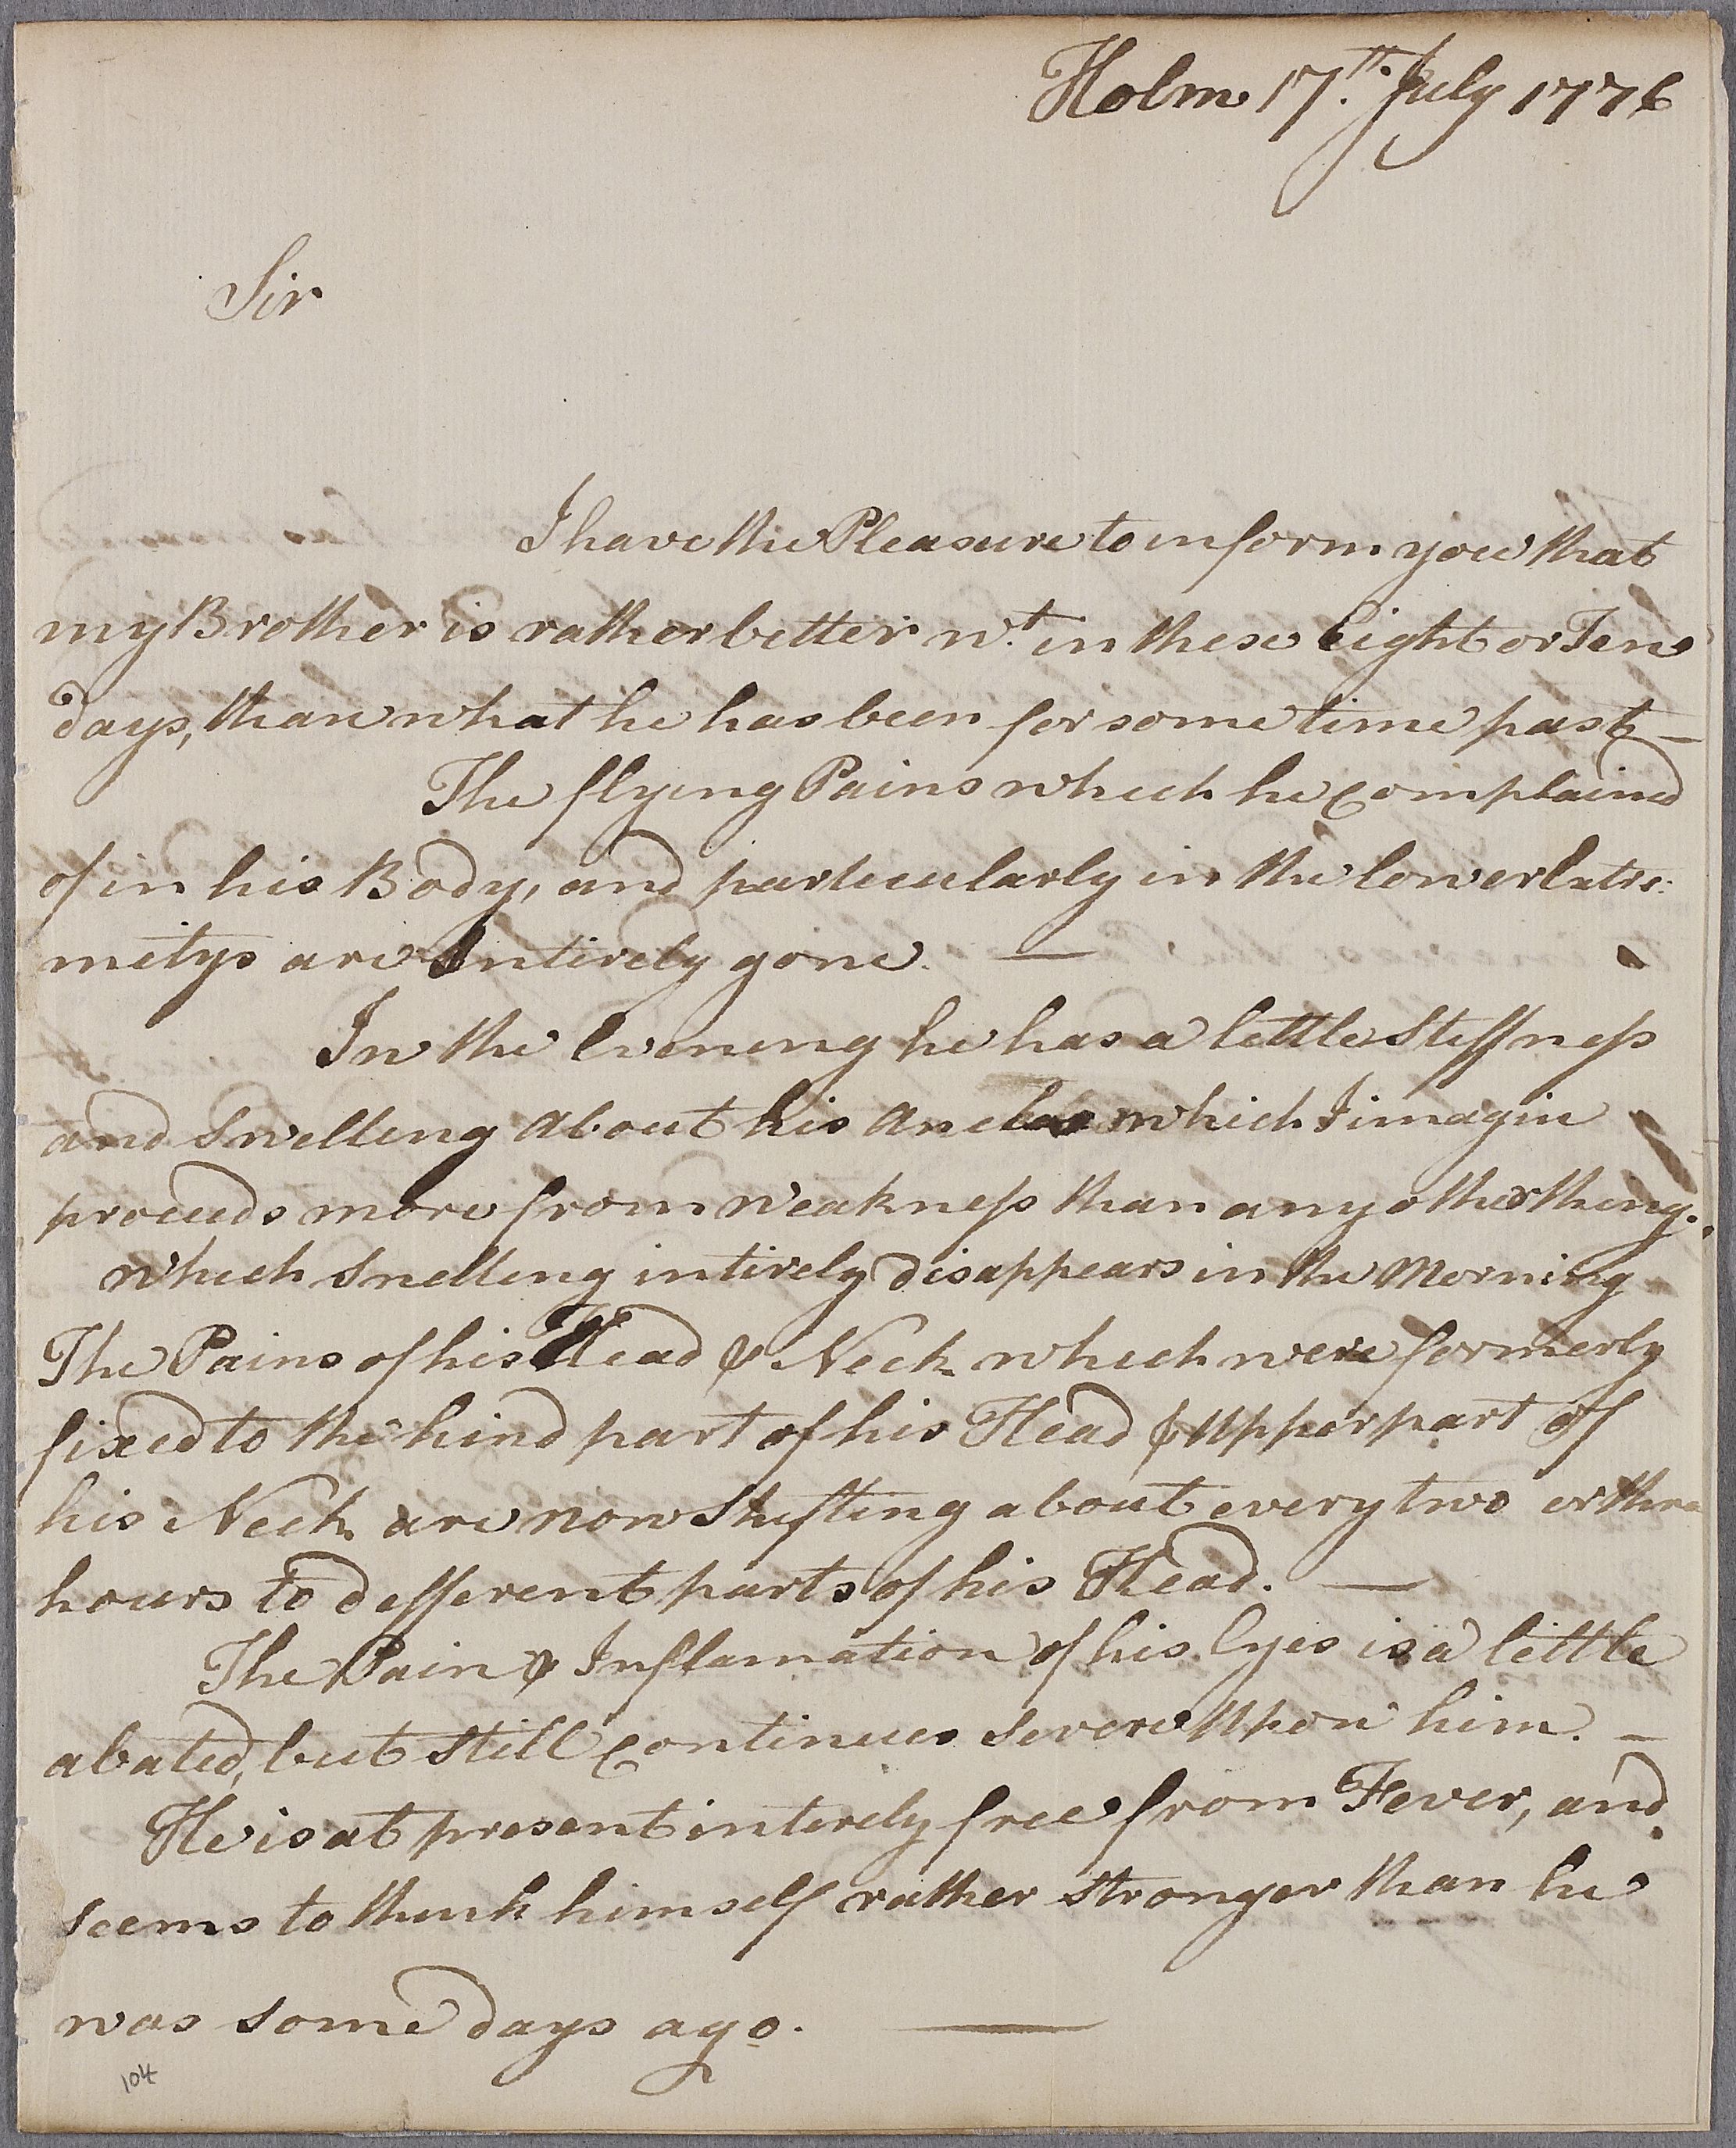 Holm 17.th July 1776
Sir
I have the Pleasure to inform you that
my Brother is rather better wt. in these Eight or Ten
days, than what he has been for some time past —
The flying Pains which he Complained
of in his Body, and particularly in the lower Extre:
mitys are Intirely gone. —
In the Evening he has a little Stiffness
and Swelling about his Ancles which I imagin
proceeds more from Weakness than any other thing.
which Swelling intirely disappears in the Morning
The Pains of his Head & Neck which were formerly
fixed to the hind part of his Head & upper part off
his Neck are now Shifting about every two or three
hours to different parts of his Head. —
The Pain & Inflamation of his Eyes is a little
abated, but still Continues severe upon him. —
He is at present intirely free from Fever, and
seems to think himself rather stronger than he
was some days ago. —
104